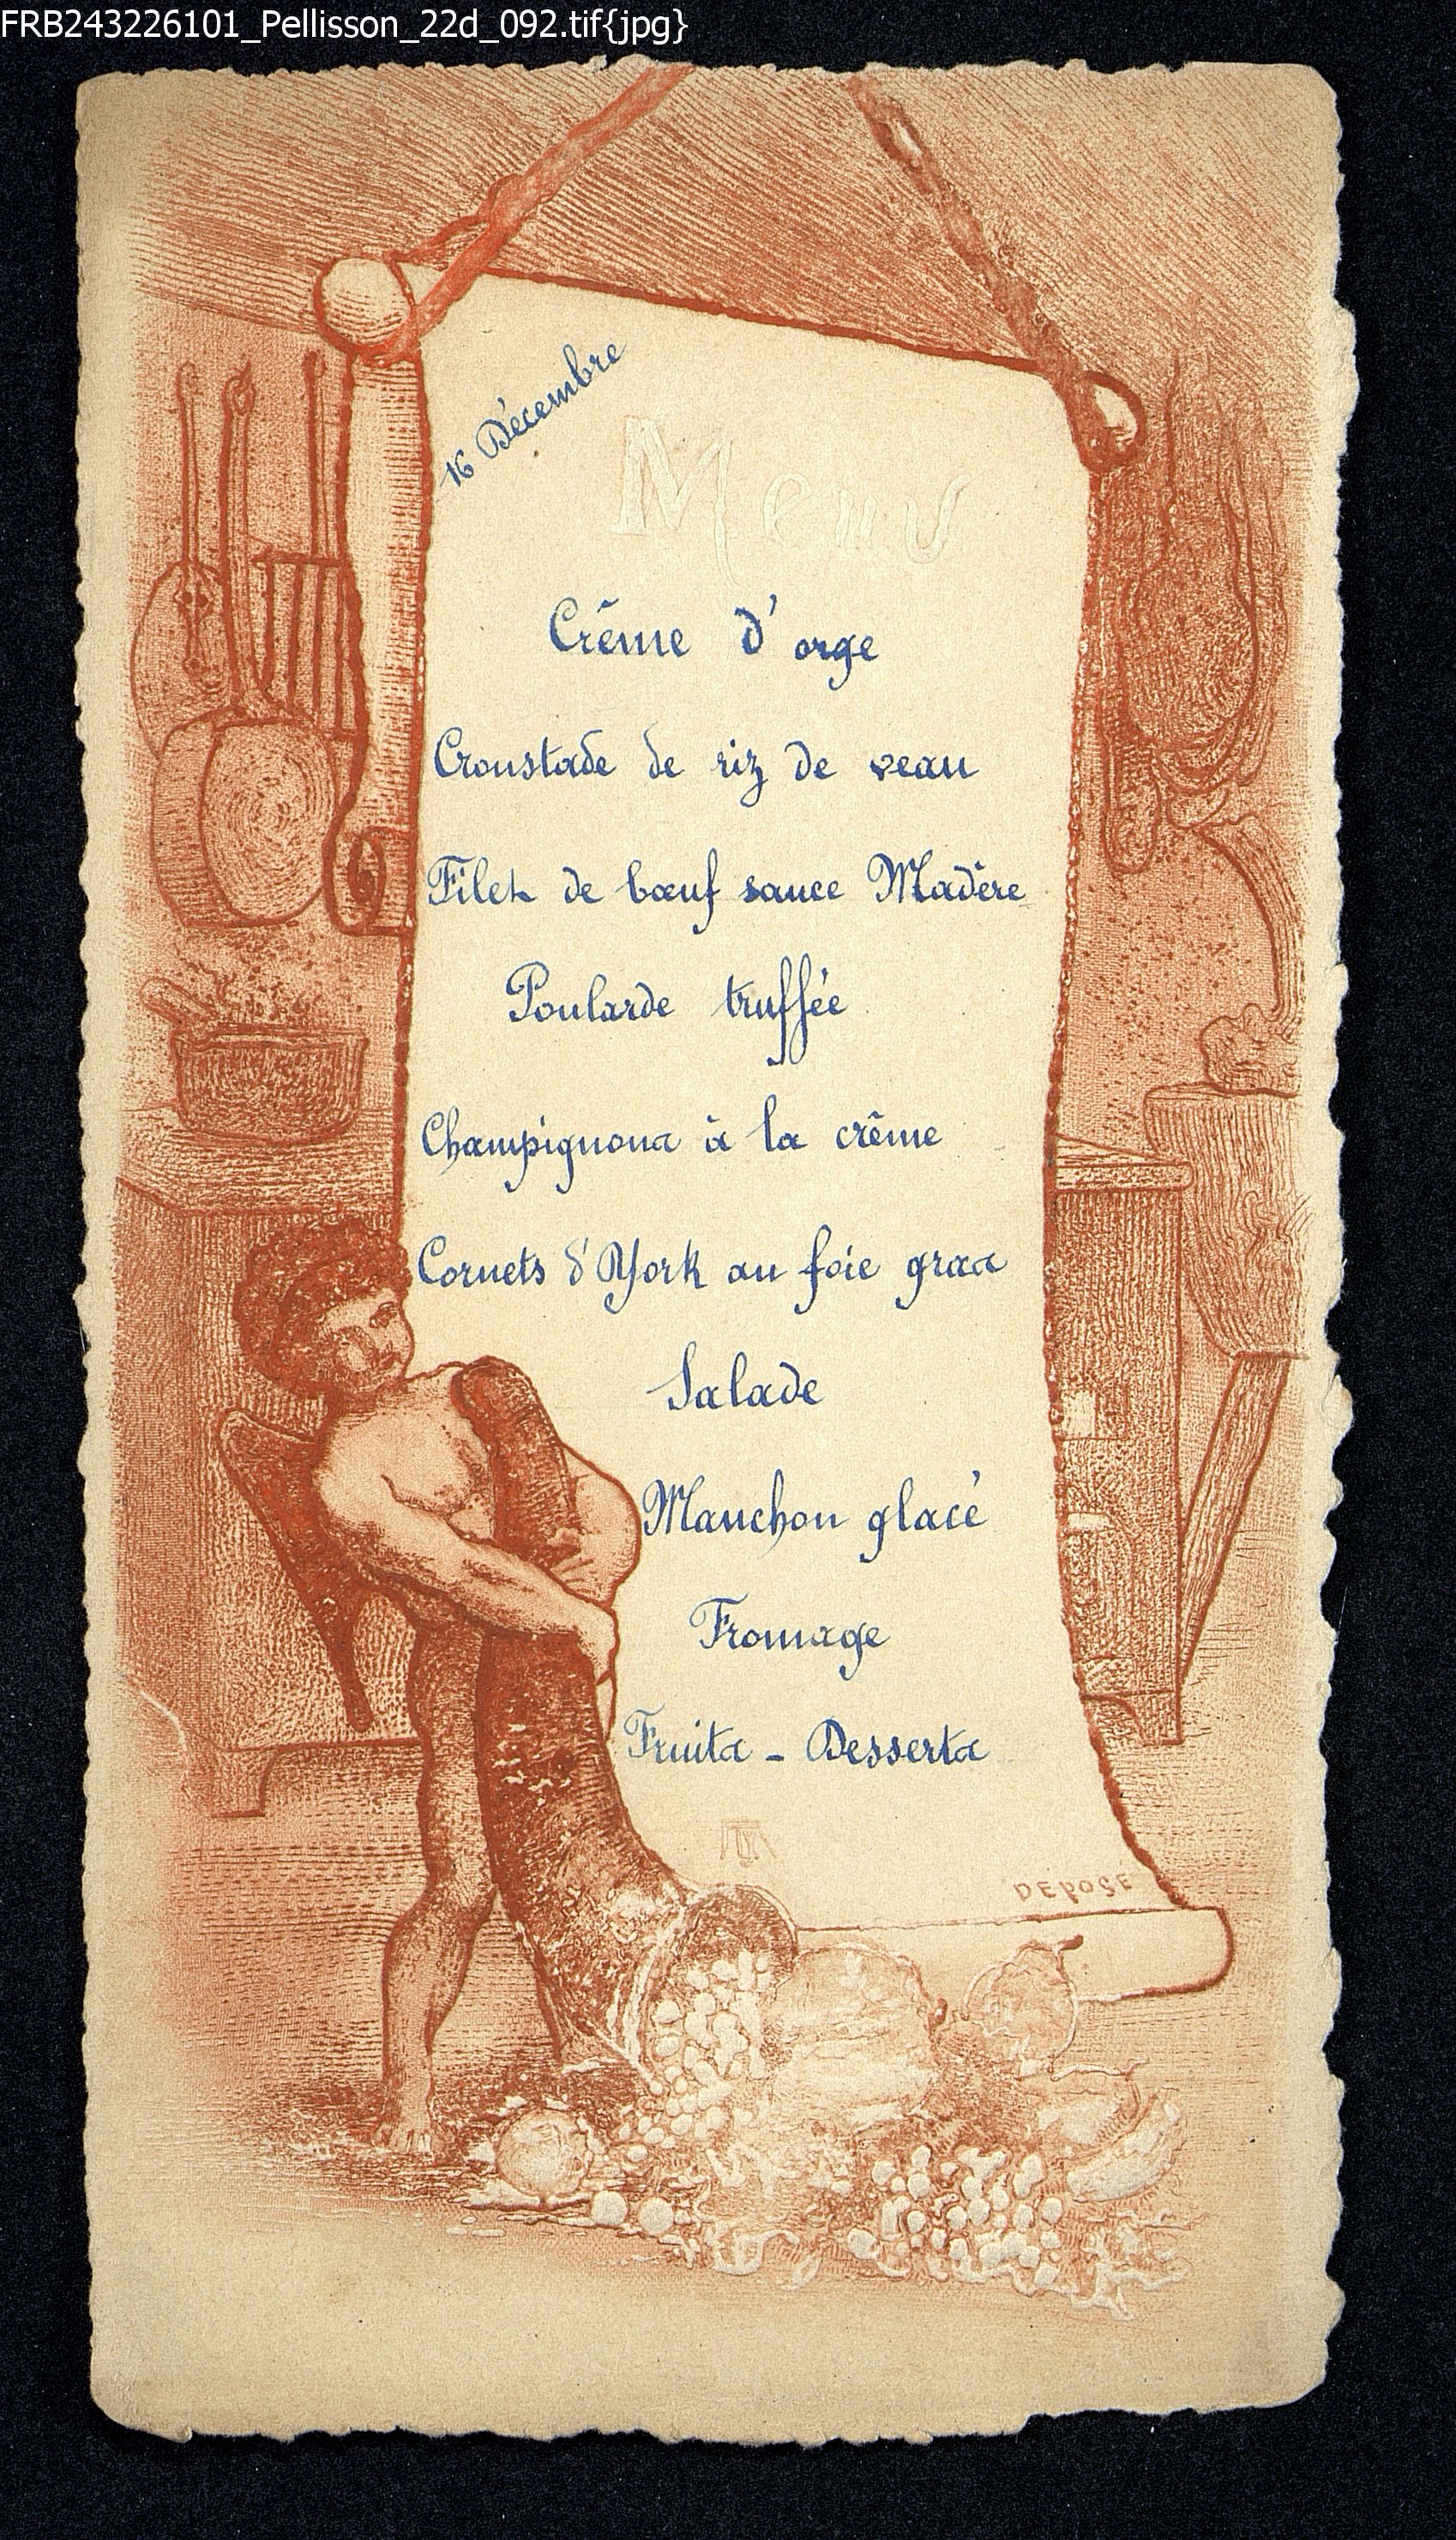 FRB243226101_Pellisson_22d_092.tif{jpg}
16 Décembre
Menu
Crême d'orge
Croustade de riz de veau
Filet de bœuf sauce Madère
Poularde truffée
Champignons à la crême
Cornets d'York au foie gras
Salade
Manchon glacé
Fromage
Fruits - Desserts
DEPOSE